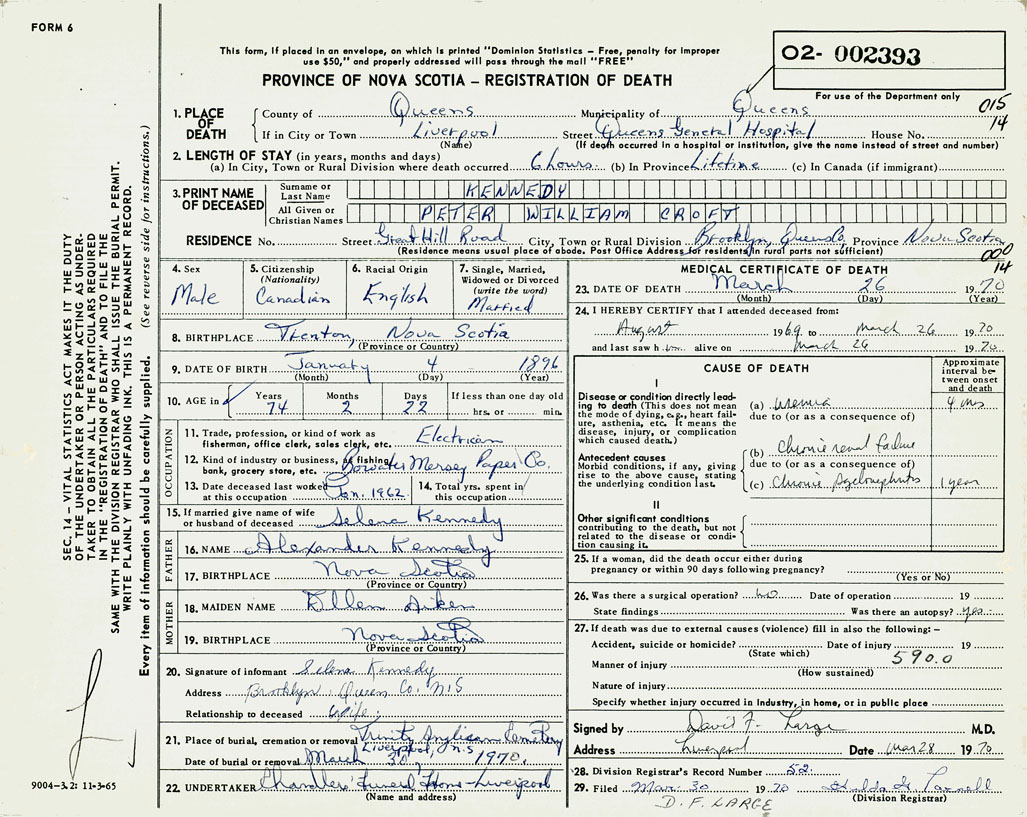 FORM 6
This form, if placed in an envelope, on which is printed "Dominion Statistics – Free, penalty for improper
use $50," and properly addressed will pass through the mail "FREE"
PROVINCE OF NOVA SCOTIA – REGISTRATION OF DEATH
02- 002393
For use of the Department only
015
14
1. PLACE OF DEATH
County of Queens Municipality of Queens
If in City or Town Liverpool Street Queens General Hospital House No.
(Name) (If death occurred in a hospital or institution, give the name instead of street and number)
2. LENGTH OF STAY (in years, months and days)
(a) In City, Town or Rural Division where death occurred 6 hours (b) In Province Lifetime (c) In Canada (if immigrant)
3. PRINT NAME OF DECEASED
Surname or Last Name KENNEDY
All Given or Christian Names PETER WILLIAM CROFT
RESIDENCE No. Street Great Hill Road City, Town or Rural Division Brooklyn, Queens Province Nova Scotia
(Residence means usual place of abode. Post Office Address for residents in rural parts not sufficient)
000
14
4. Sex Male
5. Citizenship (Nationality) Canadian
6. Racial Origin English
7. Single, Married, Widowed or Divorced (write the word) Married
8. BIRTHPLACE Trenton, Nova Scotia
(Province or Country)
9. DATE OF BIRTH January 4 1896
(Month) (Day) (Year)
10. AGE in Years 74 Months 2 Days 22 If less than one day old hrs. or min.
OCCUPATION
11. Trade, profession, or kind of work as fisherman, office clerk, sales clerk, etc. Electrician
12. Kind of industry or business, as fishing, bank, grocery store, etc. Bowater Mersey Paper Co.
13. Date deceased last worked at this occupation Jan. 1962
14. Total yrs. spent in this occupation
15. If married give name of wife or husband of deceased Selena Kennedy
FATHER
16. NAME Alexander Kennedy
17. BIRTHPLACE Nova Scotia
(Province or Country)
MOTHER
18. MAIDEN NAME Ellen Aiken
19. BIRTHPLACE Nova Scotia
(Province or Country)
20. Signature of informant Selena Kennedy
Address Brooklyn Queen Co. N.S
Relationship to deceased Wife
21. Place of burial, cremation or removal Trinity Anglican Cemetery
Liverpool, N.S
Date of burial or removal March 30, 1970.
22. UNDERTAKER Chandlers' Funeral Home - Liverpool
(Name and address)
MEDICAL CERTIFICATE OF DEATH
23. DATE OF DEATH March 26 1970
(Month) (Day) (Year)
24. I HEREBY CERTIFY that I attended deceased from:
August 1969 to March 26 1970
and last saw him alive on March 26 1970
CAUSE OF DEATH
Approximate interval between onset and death
I
Disease or condition directly leading to death (This does not mean the mode of dying, e.g., heart failure, asthenia, etc. It means the disease, injury, or complication which caused death.)
(a) uremia 4 ms
due to (or as a consequence of)
Antecedent causes
Morbid conditions, if any, giving rise to the above cause, stating the underlying condition last.
(b) Chronic renal failure
due to (or as a consequence of)
(c) Chronic Pyelonephritis 1 year
II
Other significant conditions
contributing to the death, but not related to the disease or condition causing it.
25. If a woman, did the death occur either during pregnancy or within 90 days following pregnancy?
(Yes or No)
26. Was there a surgical operation? no Date of operation 19
State findings Was there an autopsy? yes
27. If death was due to external causes (violence) fill in also the following: –
Accident, suicide or homicide? Date of injury 19
(State which) 590.0
Manner of injury
(How sustained)
Nature of injury
Specify whether injury occurred in industry, in home, or in public place
Signed by David F. Large M.D.
Address Liverpool Date Mar 28 1970
28. Division Registrar's Record Number 52.
29. Filed Mar. 30 1970
(Division Registrar)
D. F. LARGE
SEC. 14 – VITAL STATISTICS ACT MAKES IT THE DUTY
OF THE UNDERTAKER OR PERSON ACTING AS UNDER-
TAKER TO OBTAIN ALL THE PARTICULARS REQUIRED
IN THE "REGISTRATION OF DEATH" AND TO FILE THE
SAME WITH THE DIVISION REGISTRAR WHO SHALL ISSUE THE BURIAL PERMIT.
WRITE PLAINLY WITH UNFADING INK. THIS IS A PERMANENT RECORD.
Every item of information should be carefully supplied. (See reverse side for instructions.)
9004-3.2: 11-3-65